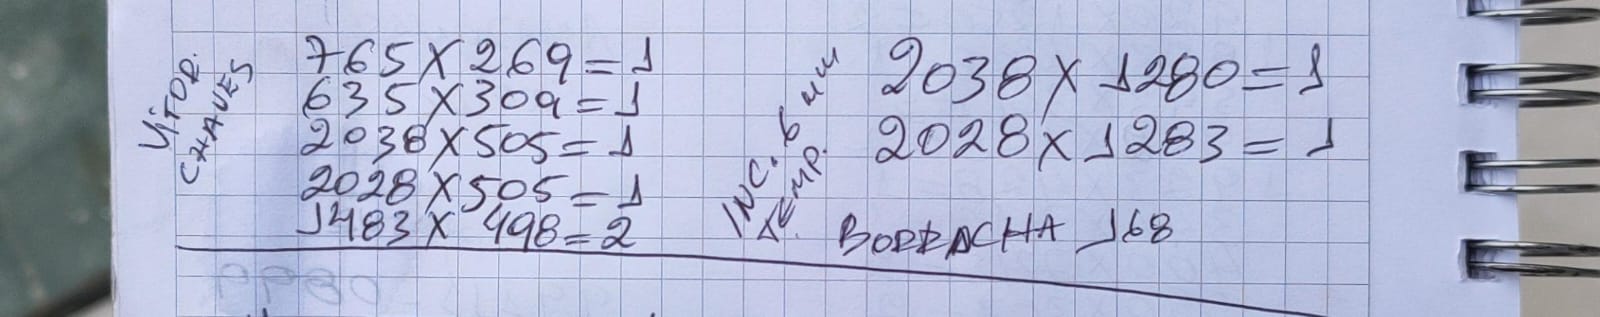 VITOR.
CHAVES
765 X 269 = 1
635 X 309 = 1
2038 X 505 = 1
2028 X 505 = 1
1483 X 498 = 2
INC. 6 mm
TEMP.
2038 X 1280 = 1
2028 X 1283 = 1
BORRACHA 168